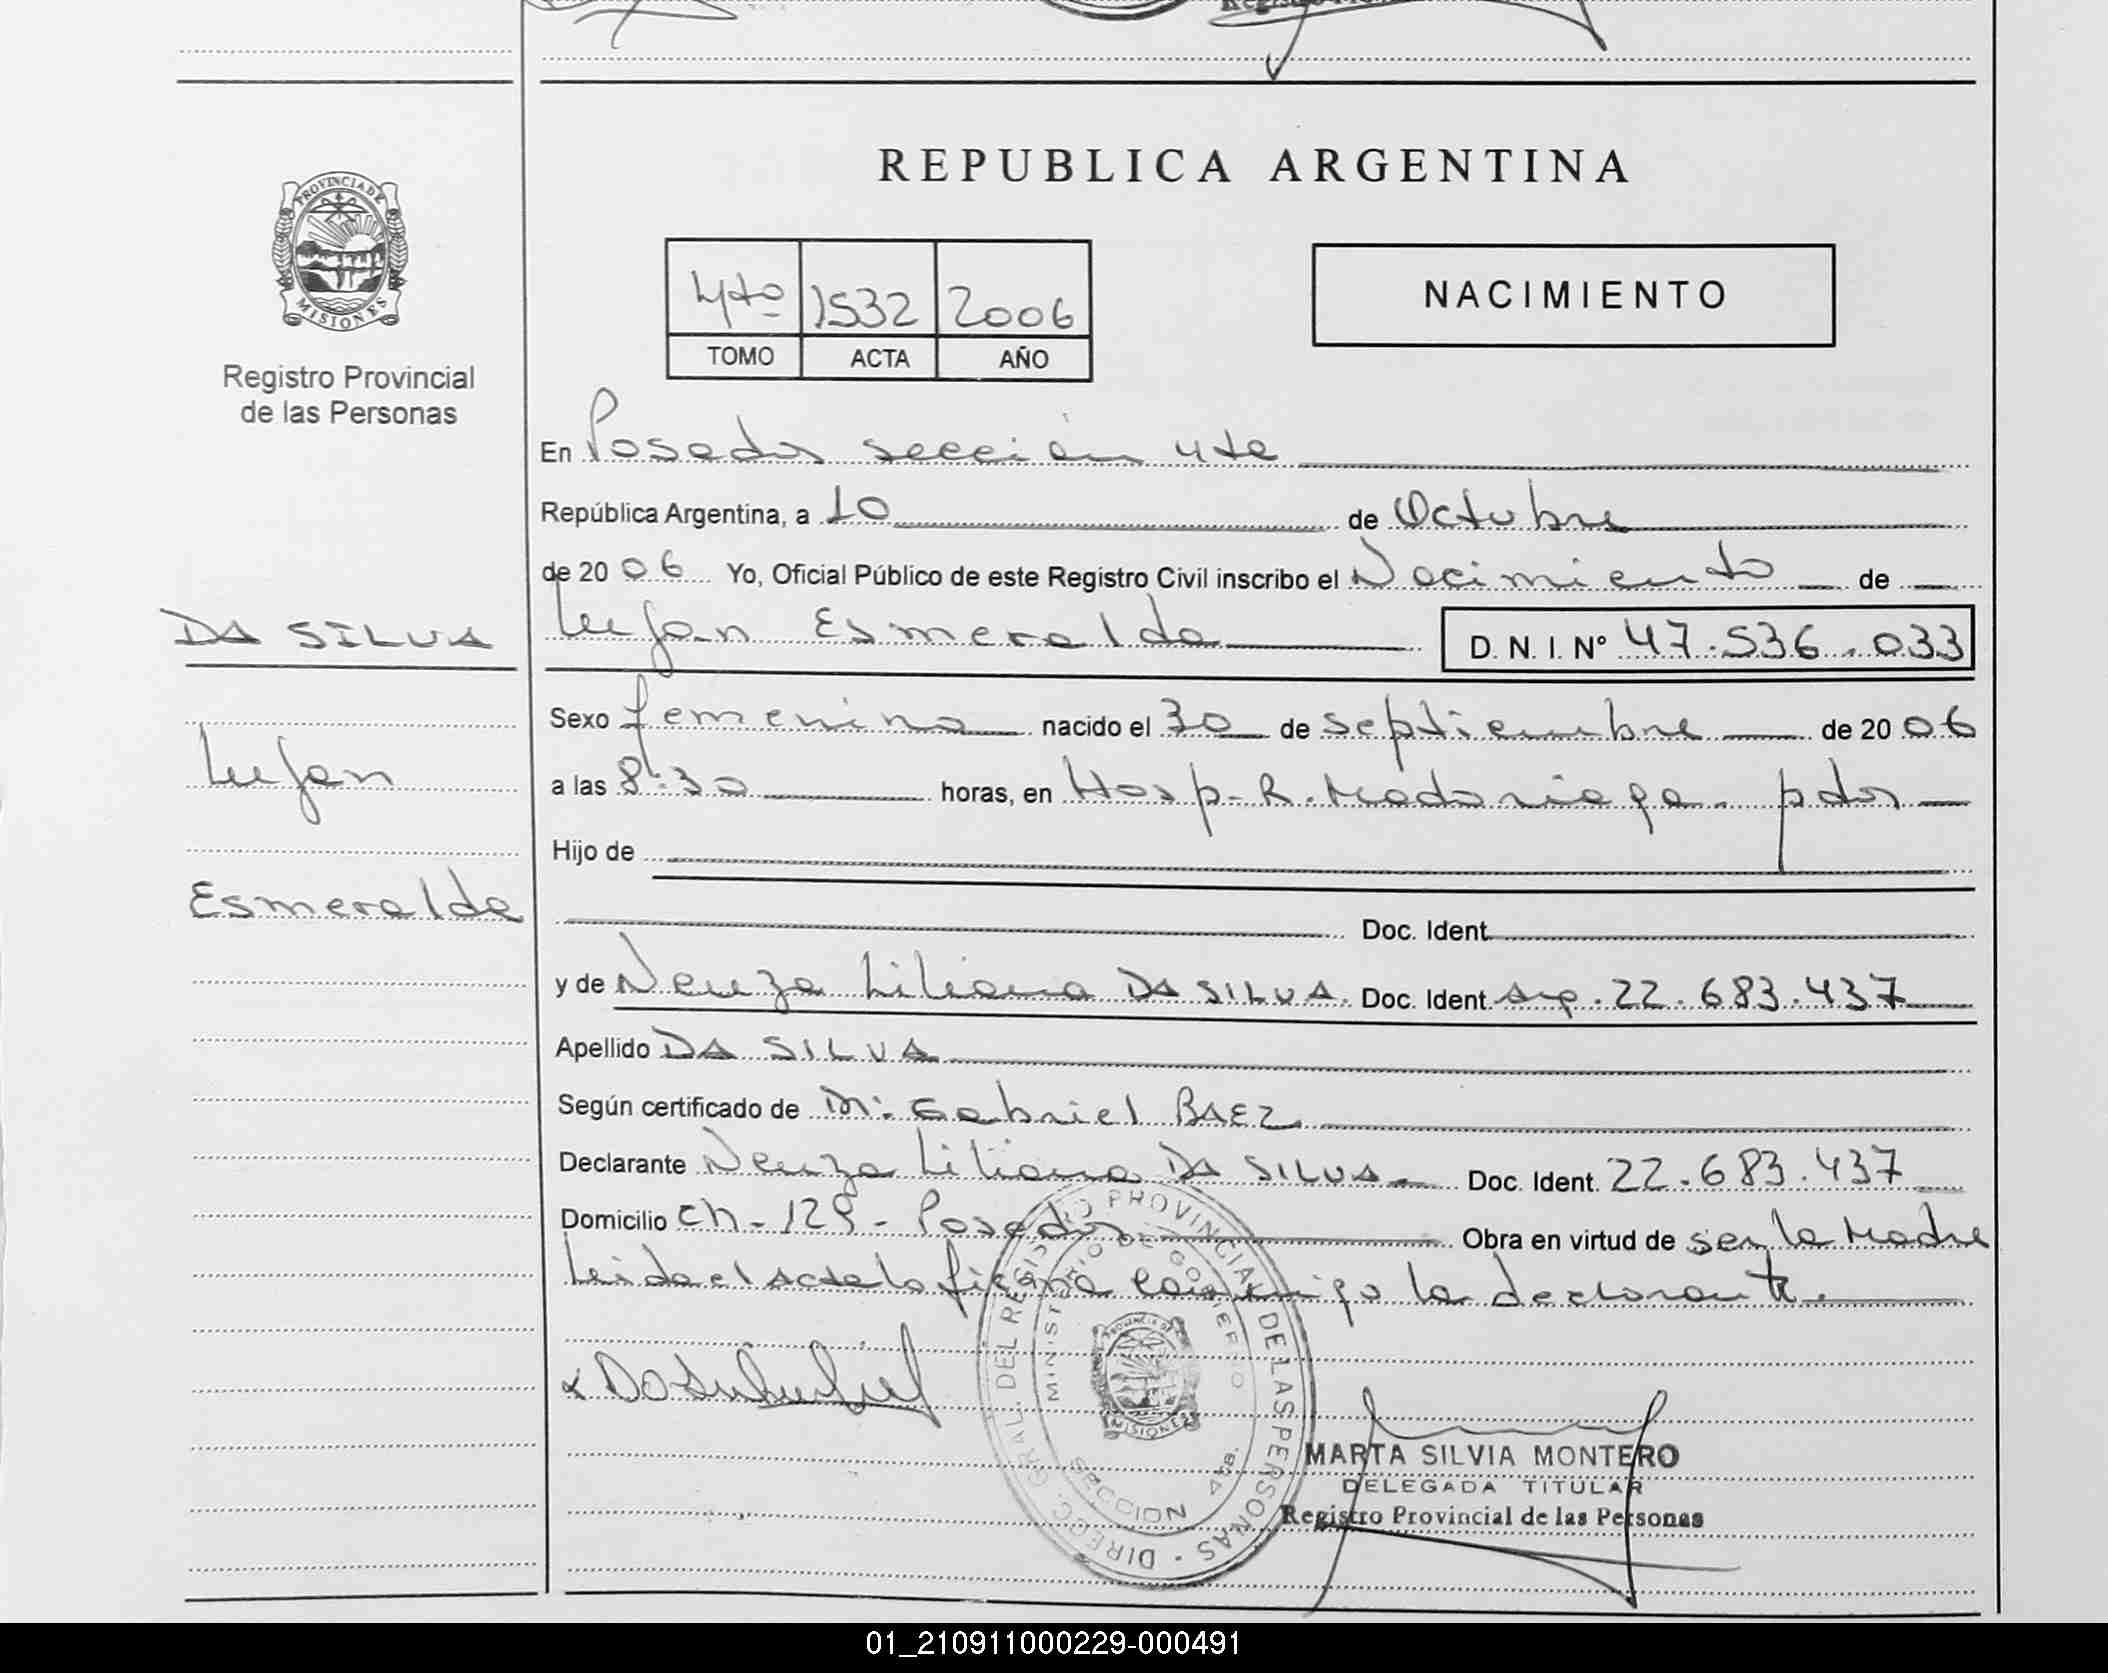 REPUBLICA ARGENTINA
PROVINCIA DE
MISIONES
Registro Provincial
de las Personas
4to 1532 2006
TOMO ACTA AÑO
NACIMIENTO
En Posadas sección 4ta
República Argentina, a 10 de Octubre
de 20 06 Yo, Oficial Público de este Registro Civil inscribo el Nacimiento de
DA SILVA
Lujan Esmeralda D. N. I. Nº 47.536.033
Sexo femenino nacido el 30 de septiembre de 20 06
Lujan
a las 8:30 horas, en Hosp. R. Madariaga. pdas
Hijo de
Esmeralda
Doc. Ident.
y de Neuza Liliana DA SILVA. Doc. Ident. Arg. 22.683.437
Apellido DA SILVA
Según certificado de Dr. Gabriel BAEZ
Declarante Neuza Liliana DA SILVA Doc. Ident. 22.683.437
Domicilio Ch - 129 - Posadas Obra en virtud de ser la Madre
Leida el Acta la firma conmigo la declarante.
DIRECC. GRAL. DEL REGISTRO PROVINCIAL DE LAS PERSONAS
MINISTERIO DE GOBIERNO
PROVINCIA DE
MISIONES
SECCION 4ta.
MARTA SILVIA MONTERO
DELEGADA TITULAR
Registro Provincial de las Personas
01_210911000229-000491